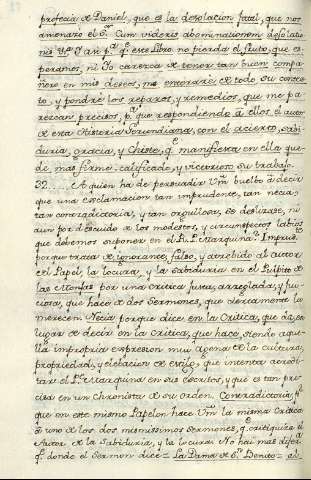 profecia de Daniel, que es la desolacion fatal, que nos
amenazó el S. Cum videris abominationem desolatio
nis &c.ª Y asi p.ª q.e este Libro no pierda el fruto, que es
peramos, ni Yo carezca de tener tan buen compa
ñero en mis deseos, me encararé de todo su contex
to, y pondré los reparos, y remedios, que me pa
rezcan precisos, p.ª que respondiendo à ellos el autor
de esta Histeria Gerundiana, con el acierto, sabi
duria, gracia, y Chiste, q.e manifiesta en ella que
de mas firme, calificado, y victorioso su trabajo.
32.... A quien ha de persuadir Vm buelbo à decir
que una esclamacion tan imprudente, tan necia,
tan contradictoria, y tan orgullosa, se deslizase, ni
aun por descuido de los modestos, y circunspectos labios
que debemos suponer en el R. P. Marquina? Imprud.te
porque trata de ignorante, falso, y atrebido al autor
del Papel, la locura, y la Sabiduria en el Pulpito de
las Monjas por una critica justa, arreglada, y jui
ciosa, que hace de dos Sermones, que ciertamente la
merecen. Necia porque dice en la Critica, que da, en
lugar de decir en la Critica, que hace, siendo aque
lla impropria expresion muy agena de la cultura,
propriedad, y elebacion de estilo, que intenta acredi
tar el P. Marquina en sus escritos, y que es tan pre
cisa en un Chronista de su orden. Contradictoria, p.r
que en este mismo Papelon hace Vm la misma Critica
de uno de los dos mismissimos Sermones, q.e critiquiza el
Autor de la Sabiduria, y la locura. No hai mas difer.ª
q.e donde el Sermon dice = La Dama de S.n Benito = el